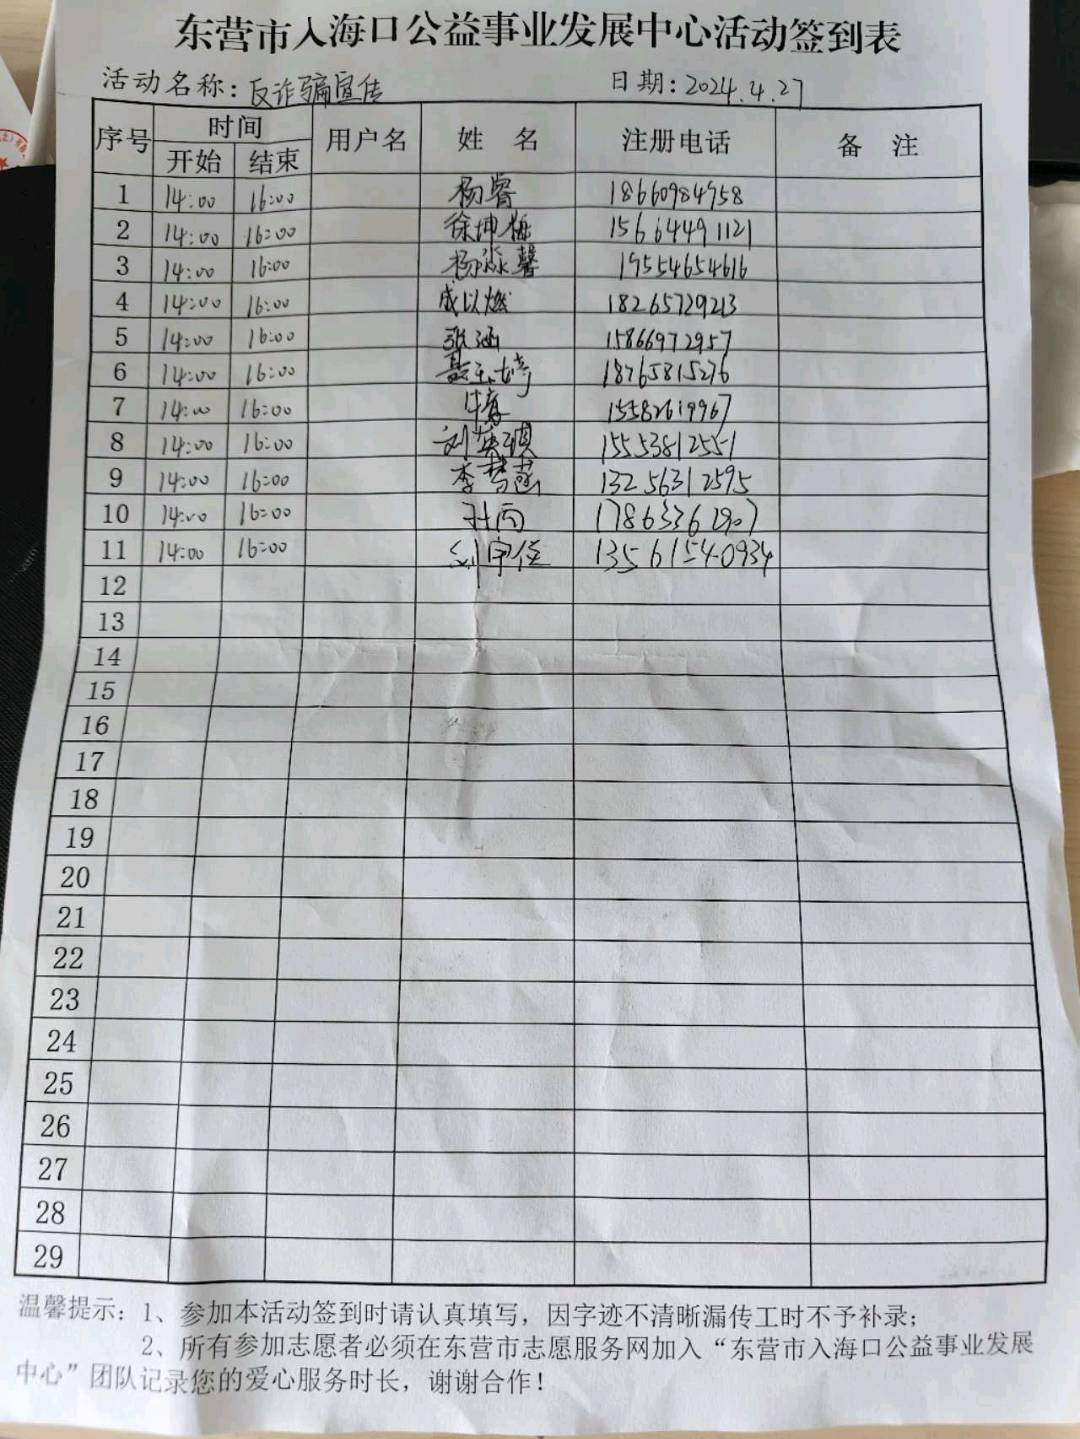 东营市入海口公益事业发展中心活动签到表
活动名称：反诈骗宣传 日期：2024.4.27
序号 时间 用户名 姓 名 注册电话 备 注
开始 结束
1 14:00 16:00 杨睿 18660984958
2 14:00 16:00 徐坤梅 15664491121
3 14:00 16:00 杨淼馨 19554654616
4 14:00 16:00 成以燃 18265729213
5 14:00 16:00 张涵 15866972957
6 14:00 16:00 聂玉婷 18765815276
7 14:00 16:00 15582619967
8 14:00 16:00 刘英琪 15553812551
9 14:00 16:00 李梦菡 13256312595
10 14:00 16:00 17863362907
11 14:00 16:00 刘宇佳 13561540934
12
13
14
15
16
17
18
19
20
21
22
23
24
25
26
27
28
29
温馨提示：1、参加本活动签到时请认真填写，因字迹不清晰漏传工时不予补录；
2、所有参加志愿者必须在东营市志愿服务网加入“东营市入海口公益事业发展
中心”团队记录您的爱心服务时长，谢谢合作！